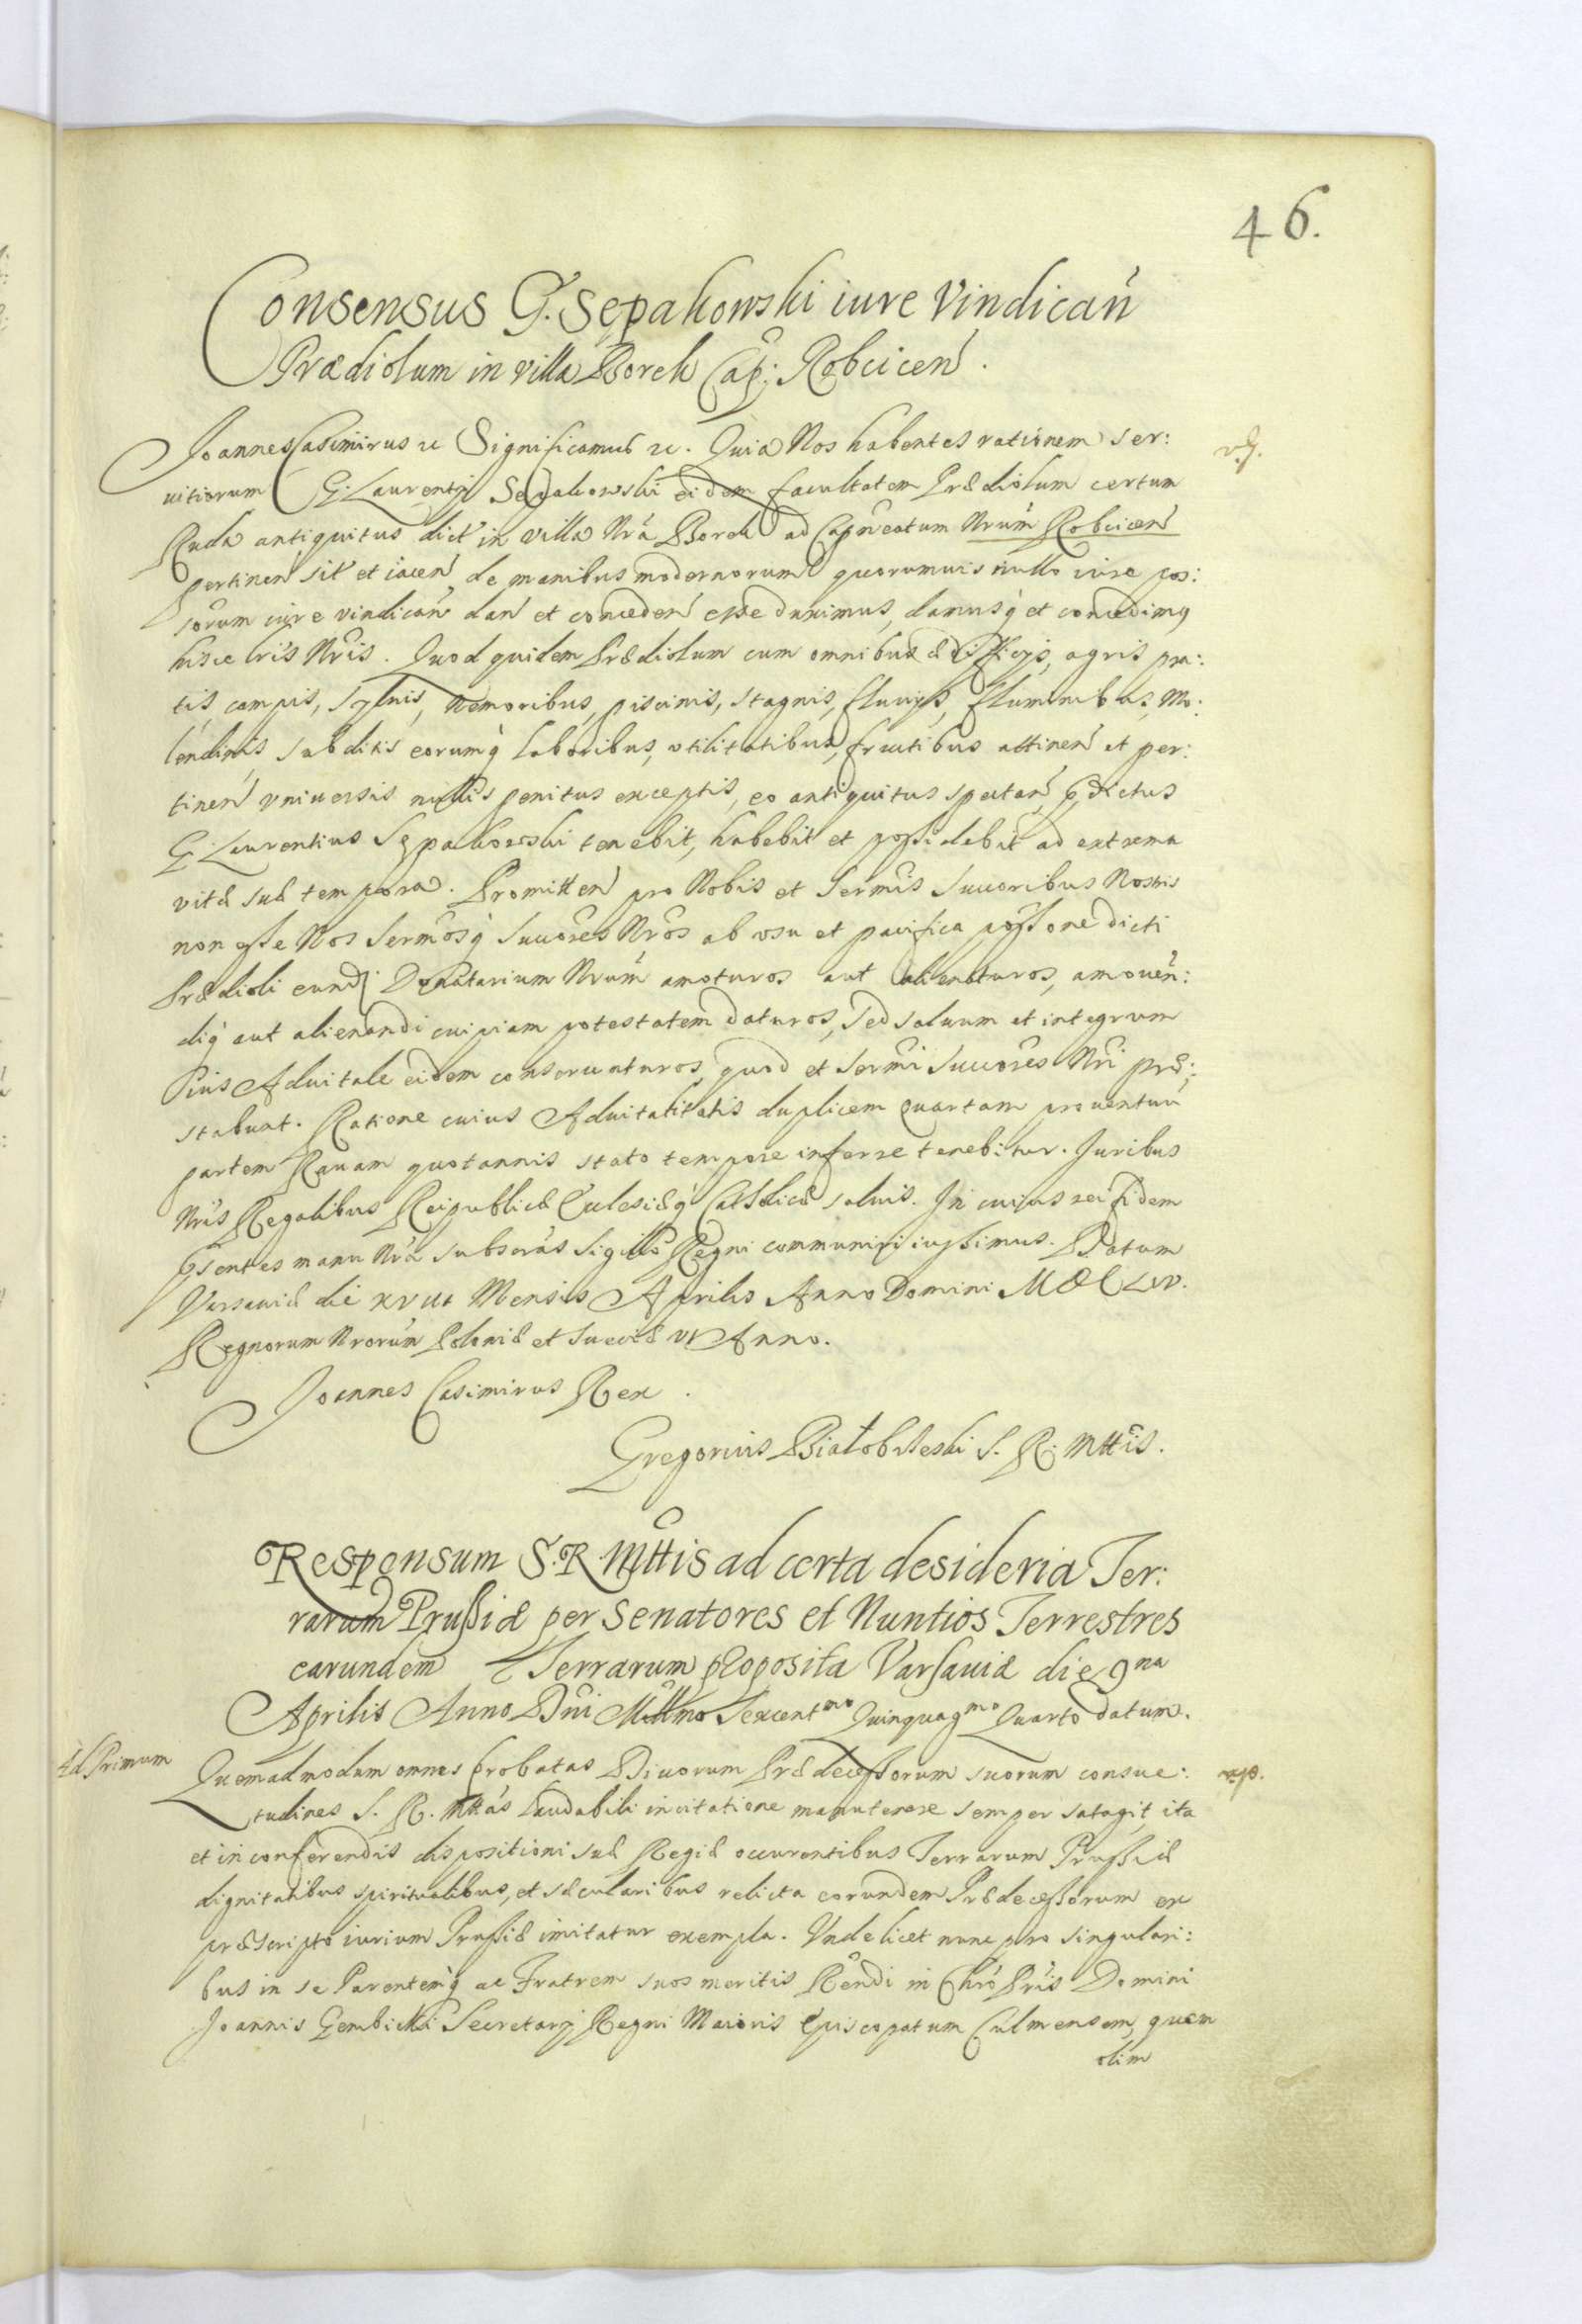 46.
Consensus G. Sępakowski iure Vindicań
Prædiolum in villa Borek Cap: Robcicen̄.
Joannes Casimirus etc Significamus etc. Quia Nos habentes rationem ser:
uitiorum G: Laurentij Sępakowski eidem facultatem Prædiolum certum
Ruda antiquitus dict' in villa Nrã Borek ad Capneatum Nrum̃ Robcicen̄
pertinen̄ sit' et iacen̄ de manibus modernorum quorumuis nullo iure pos:
sorum iure vindicań dan̄ et conceden̄ esse duximus, damusq́ et concedimq
hisce lris Nris. Quod quidem Prædiolum cum omnibus ædificijs, agris pra:
tis, campis, syluis, nemoribus, piscinis, stagnis, fluuijs, fluminibus, Mo:
lendinis, subditis eorumq́ laboribus, vtilitatibus, fructibus attinen̄ et per:
tinen̄ vniuersis nullis penitus exceptis, eo antiquitus spectan̄, pdictus
G: Laurentius Sępakowski tenebit, habebit et possidebit ad extrema
vitæ suæ tempora. Promitten̄ pro Nobis et Sermis Succoribus Nostris
non esse Nos Sermosq́ Succores Nros ab vsu et pacifica possone dicti
Prædioli eund: Donatarium Nrum̃ amoturos aut alienaturos, amouen̄:
diq́ aut alienandi cuipiam potestatem daturos, sed saluum et integrum
Jus Aduitale eidem conseruaturos, quod et Sermi Succores Nri præ:
stabunt. Ratione cuius Aduitalitatis duplicem quartam prouentuũ
partem Rauam quotannis stato tempore inferre tenebitur. Juribus
Nris Regalibus Reipublicæ Ecclesiæq́ Catholicæ saluis. In cuius rei fidem
psentes manu Nrã subscrãs Sigillo Regni communiri iussimus. Datum
Varsauiæ die XVIII Mensis Aprilis Anno Domini MDCLIV.
Regnorum Nrorum̃ Poloniæ et Sueciæ VI Anno.
Joannes Casimirus Rex.
Gregorius Białobrzeski S. R. Mttis.
Responsum S. R. Mttis ad certa desideria Ter:
rarum Prussiæ per Senatores et Nuntios Terrestres
earundem Terrarum pposita Varsauiæ die 9na
Aprilis Anno Dni Millmo Sexcentmo Quinquagmo Quarto datum.
Ad Primum
Quemadmodum omnes probatas Diuorum Prædecessorum suorum consue:
tudines S. R. Mttas laudabili incitatione manutenere semper satagit, ita
et in conferendis dispositioni suæ Regiæ occurentibus Terrarum Prussiæ
dignitatibus spiritualibus, et sæcularibus relicta eorundem Prædecessorum ex
præscripto iurium Prussiæ imitatur exempla. Vnde licet nunc pro singulari:
bus in se Parentemq́ ac Fratrem suos meritis Rendi in Chro Pris Domini
Joannis Gembicki Secretarij Regni Maioris Episcopatum Culmensem, quem
olim